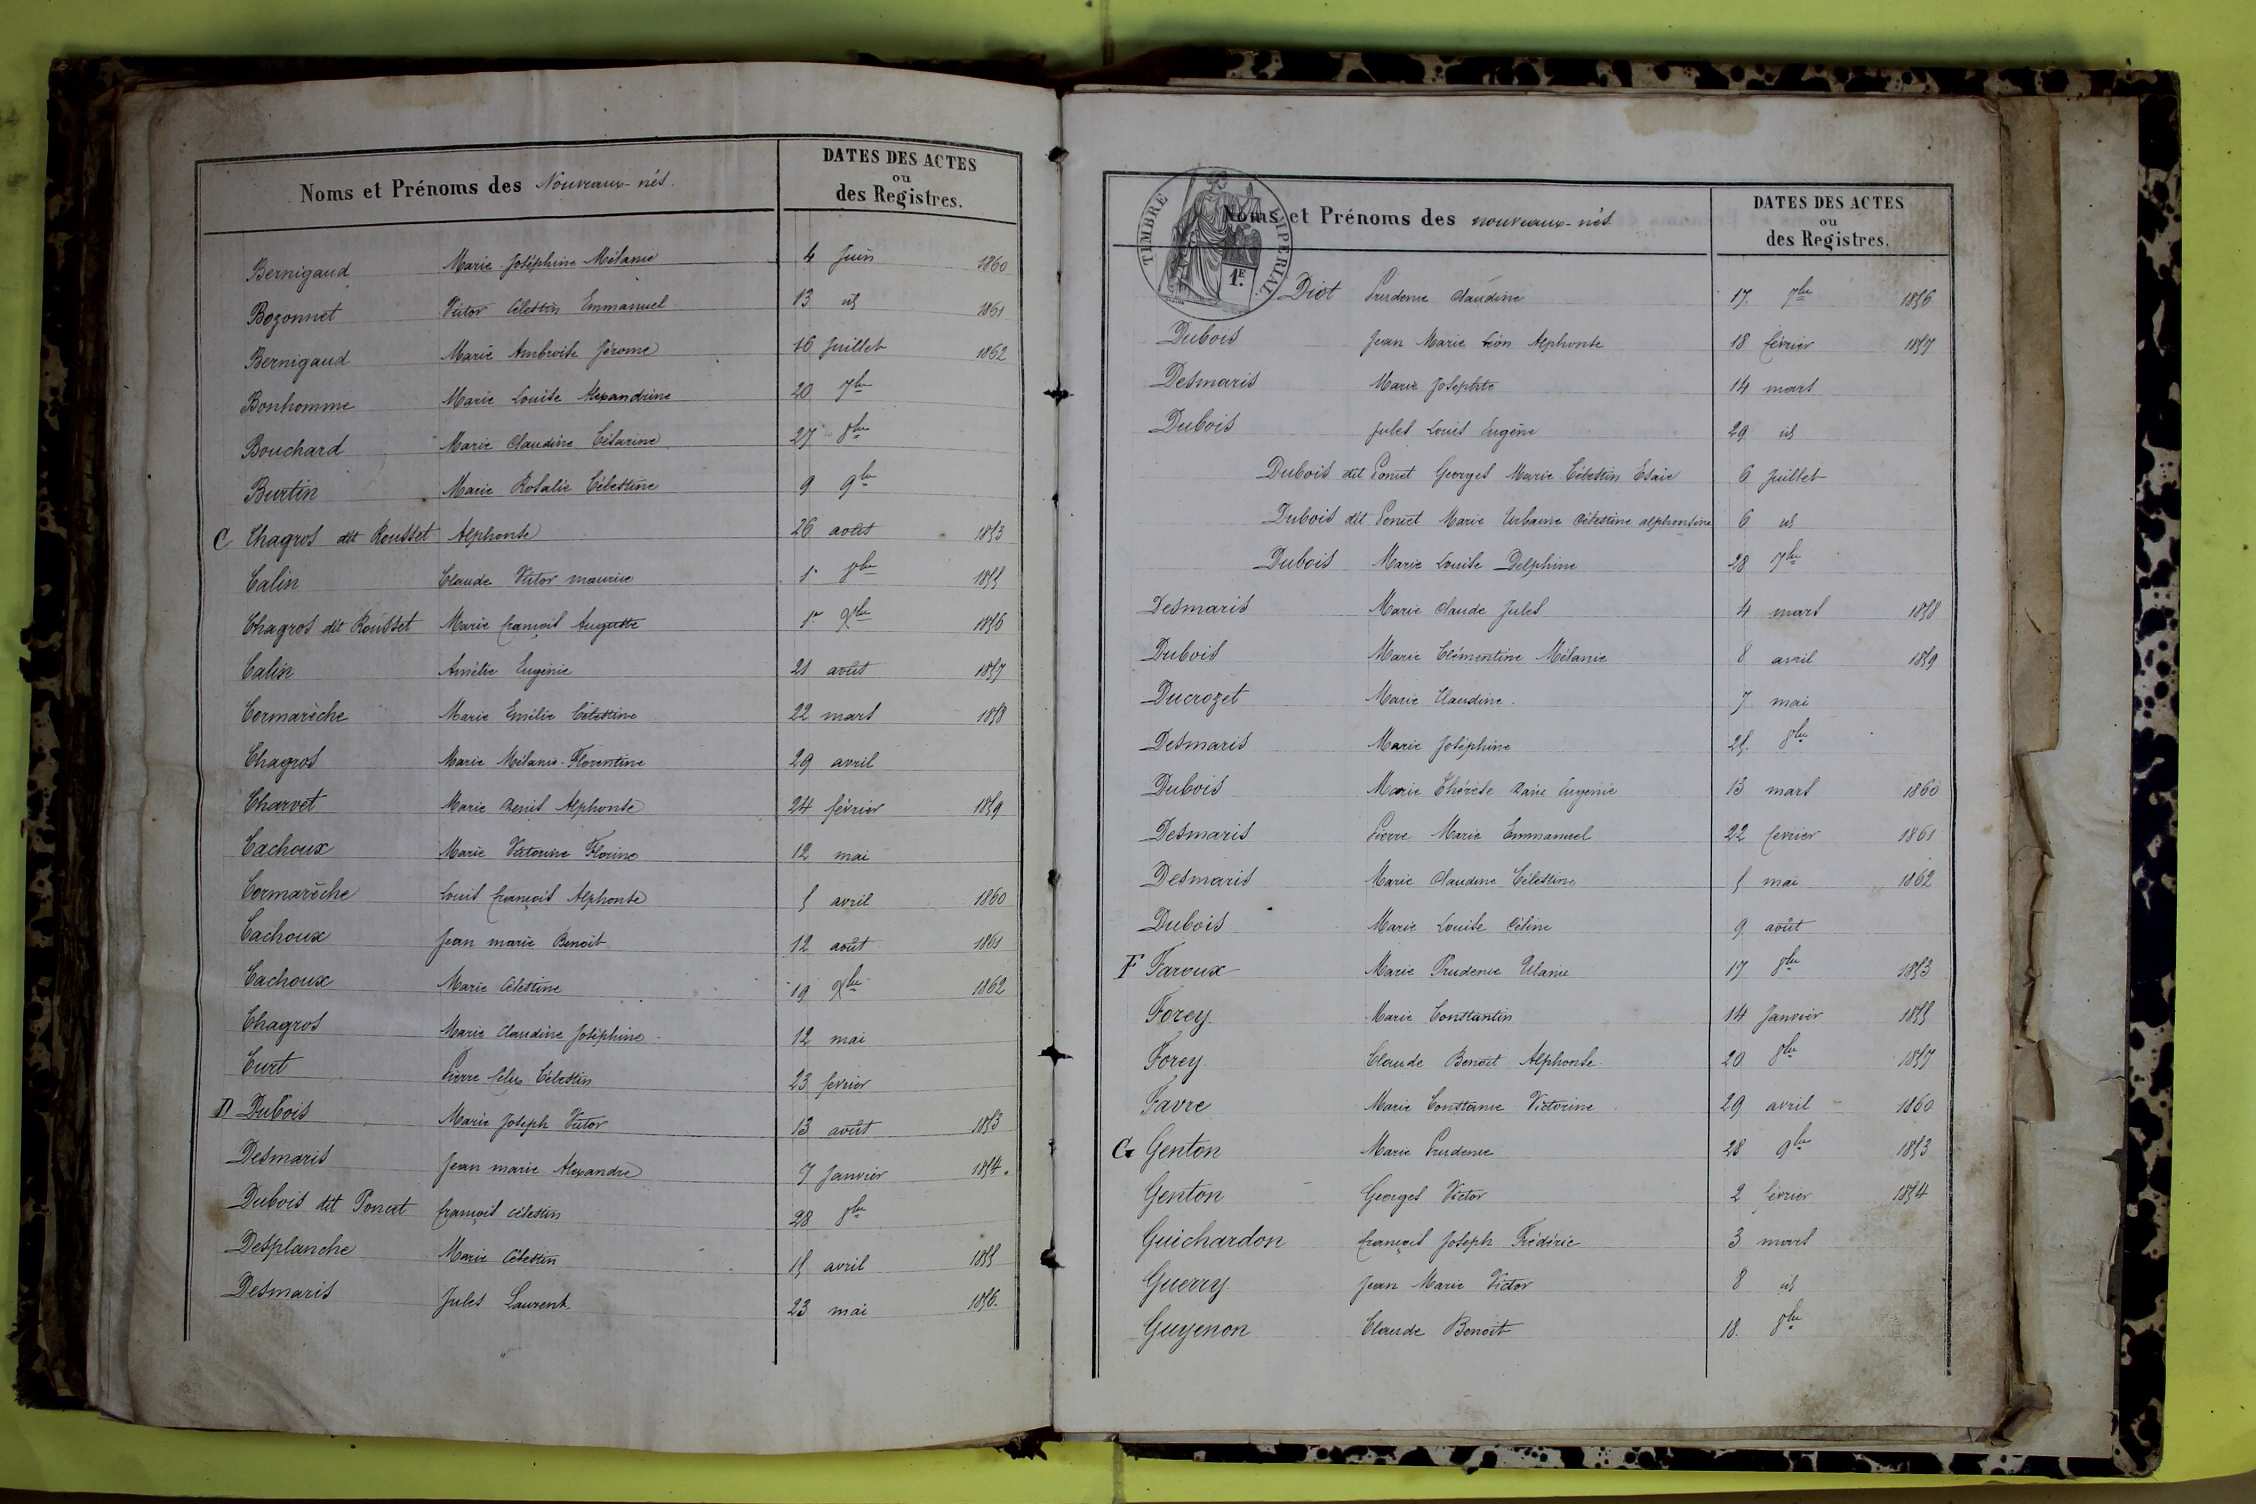 Noms et Prénoms des Nouveaux-nés.
DATES DES ACTES
ou
des Registres.
Bernigaud Marie Joséphine Mélanie 4 Juin 1860
Bozonnet Victor Célestin Emmanuel 13 id 1861
Bernigaud Marie Ambroise Jérome 16 Juillet 1862
Bonhomme Marie Louise Alexandrine 20 7bre
Bouchard Marie Claudine Césarine 27 8bre
Burtin Marie Rosalie Célestine 9 9bre
C Chagros dit Rousset Alphonse 26 août 1853
Calin Claude Victor maurice 1er 8bre 1855
Chagros dit Rousset Marie françois Auguste 1er Xbre 1856
Calin Amélie Eugénie 21 août 1857
Cormarèche Marie Emélie Célestine 22 mars 1858
Chagros Marie Mélanie-Florentine 29 avril
Charvet Marie Denis Alphonse 24 février 1859
Cachoux Marie Victorine Florine 12 mai
Cormarèche Louis françois Alphonse 5 avril 1860
Cachoux Jean marie Benoit 12 août 1861
Cachoux Marie Célestine 19 Xbre 1862
Chagros Marie Claudine Joséphine 12 mai
Curt Pierre félix Célestin 23 fevrier
D Dubois Marie Joseph Victor 13 août 1853
Desmaris Jean marie Alexandre 7 Janvier 1854.
Dubois dit Poncet françois célestin 28 8bre
Desplanche Marie Célestin 15 avril 1855
Desmaris Jules Laurent 23 mai 1856.
TIMBRE IMPERIAL
1E.
Noms et Prénoms des nouveaux-nés
DATES DES ACTES
ou
des Registres.
Diot Prudence Claudine 17 7bre 1856
Dubois Jean Marie Léon Alphonse 18 février 1857
Desmaris Marie Josephte 14 mars
Dubois Jules Louis Eugène 29 id
Dubois dit Poncet Georges Marie Célestin Esaie 6 Juillet
Dubois dit Poncet Marie Urbanie Célestine alphonsine 6 id
Dubois Marie Louise Delphine 28 7bre
Desmaris Marie Claude Jules 4 mars 1858
Dubois Marie Clémentine Mélanie 8 avril 1859
Ducrozet Marie Claudine. 7 mai
Desmaris Marie Joséphine 25 8bre
Dubois Marie Thérèse Eugenie 13 mars 1860
Desmaris Pierre Marie Emmanuel 22 fevrier 1861
Desmaris Marie Claudine Célestine 5 mai 1862
Dubois Marie Louise Céline 9 août
F Faroux Marie Prudence 17 8bre 1853
Forey Marie Constantin 14 Janvier 1855
Forey Claude Benoit Alphonse 20 8bre 1857
Favre Marie Constance Victorine 29 avril 1860
G Genton Marie Prudence 28 9bre 1853
Genton Georges Victor 2 février 1854
Guichardon françois Joseph Frédéric 3 mars
Guerry Jean Marie Victor 8 id
Guyenon Claude Benoit 18 8bre